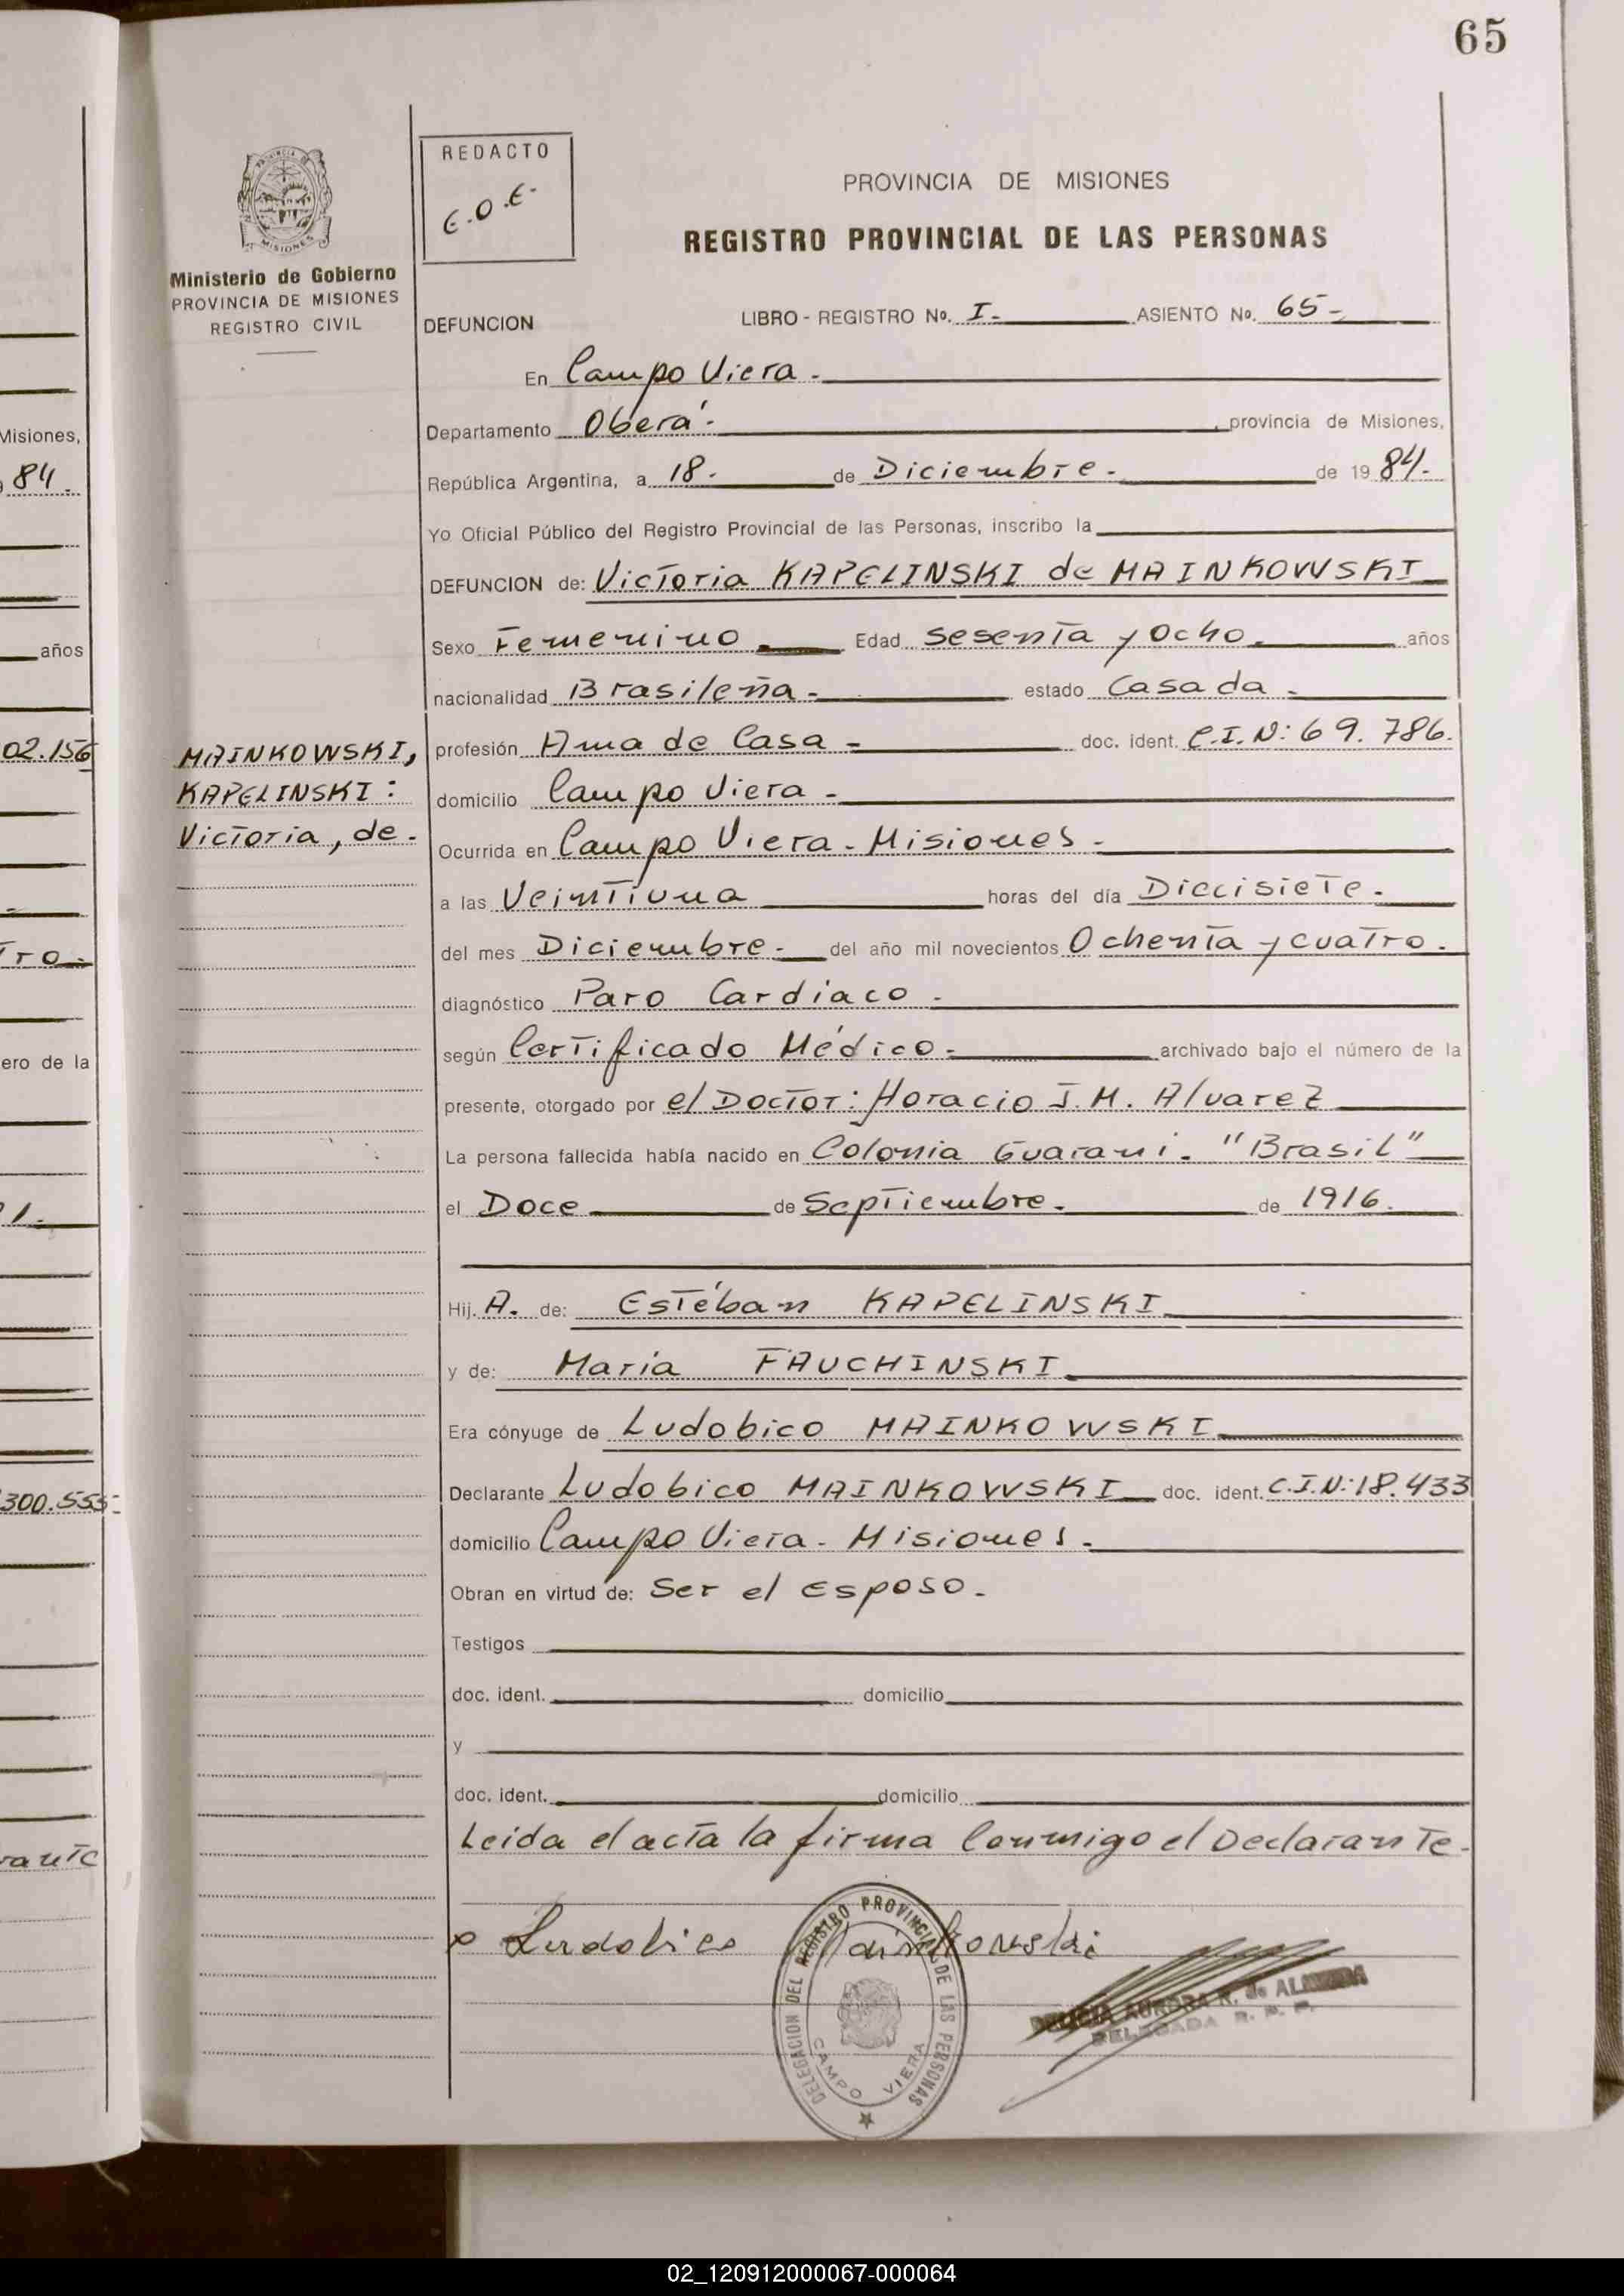 65
PROVINCIA DE
MISIONES
Ministerio de Gobierno
PROVINCIA DE MISIONES
REGISTRO CIVIL
REDACTO
E.O.E-
PROVINCIA DE MISIONES
REGISTRO PROVINCIAL DE LAS PERSONAS
DEFUNCION LIBRO - REGISTRO No. I.- ASIENTO No. 65-
En Campo Viera -
Departamento Oberá - , provincia de Misiones,
República Argentina, a 18- de Diciembre - de 1984.-
Yo Oficial Público del Registro Provincial de las Personas, inscribo la
DEFUNCION de: Victoria KAPELINSKI de MAINKOWSKI
Sexo Femenino Edad Sesenta y Ocho- años
nacionalidad Brasileña - estado Casada -
profesión Ama de Casa - doc. ident. C.I.N: 69.786.
domicilio Campo Viera -
Ocurrida en Campo Viera - Misiones -
a las Veintiuna horas del día Diecisiete -
del mes Diciembre - del año mil novecientos Ochenta y cuatro -
diagnóstico Paro Cardiaco -
según Certificado Médico - archivado bajo el número de la
presente, otorgado por el Doctor: Horacio J. M. Alvarez
La persona fallecida había nacido en Colonia Guarani - "Brasil"
el Doce de Septiembre - de 1916.
Hij. A. de: Estéban KAPELINSKI
y de: Maria FAUCHINSKI
Era cónyuge de Ludobico MAINKOWSKI
Declarante Ludobico MAINKOWSKI doc. ident. C.I.N: 18.433
domicilio Campo Viera - Misiones -
Obran en virtud de: Ser el Esposo -
Testigos
doc. ident. domicilio
y
doc. ident. domicilio
Leida el acta la firma Conmigo el Declarante -
Ludobico Mainkowski
DELEGACION DEL REGISTRO PROVINCIAL DE LAS PERSONAS
CAMPO VIERA
AURORA R. de ALMEIDA
DELEGADA R. P. P.
MAINKOWSKI,
KAPELINSKI:
Victoria, de -
Misiones,
84.
años
02.156
tro-
ero de la
1.-
300.555-
02_120912000067-000064